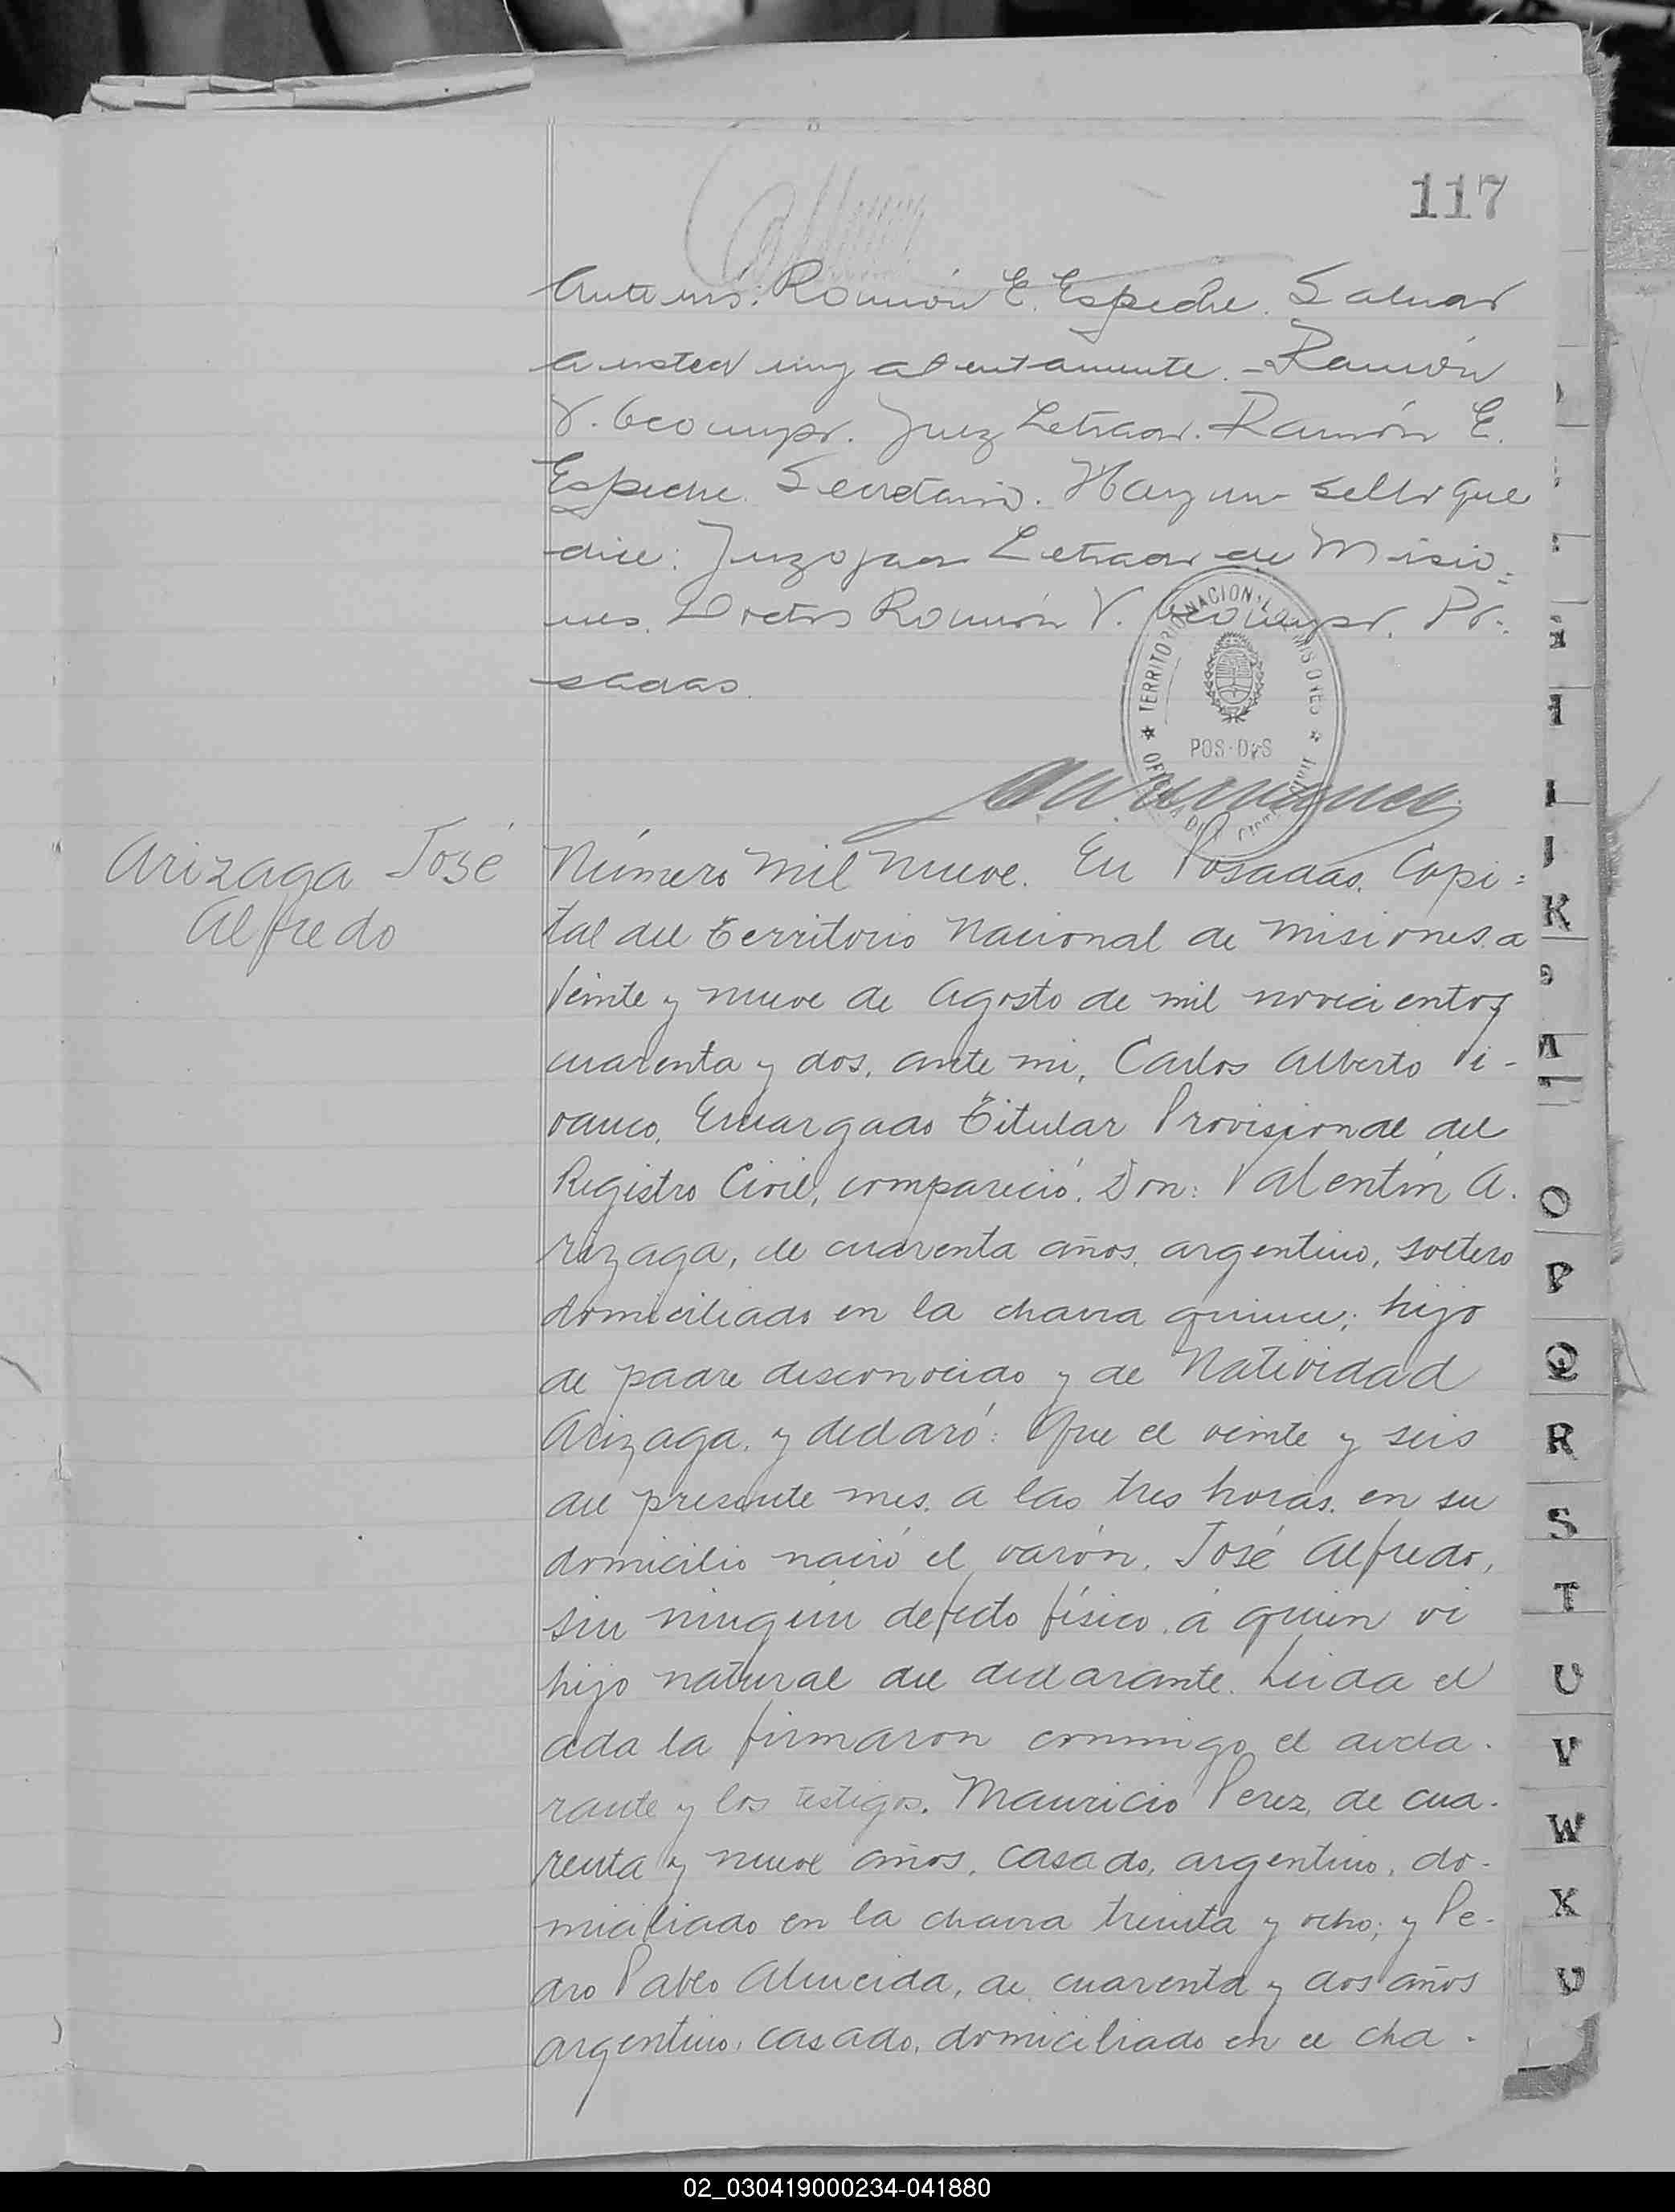 117
Ante mi: Ramón E. Espeche. Saludo
a usted muy atentamente. - Ramón
V. Ocampo. Juez Letrado. Ramón E.
Espeche. Secretario. Hay un sello que
dice: Juzgado Letrado de Misio=
nes. Doctor Ramón V. Ocampo. Po=
sadas.
TERRITORIO NACIONAL DE MISIONES
POSADAS
Arizaga José
Alfredo
Número mil nueve. En Posadas, Capi=
tal del Territorio Nacional de Misiones, a
veinte y nueve de Agosto de mil novecientos
cuarenta y dos, ante mi, Carlos Alberto Vi-
vanco, Encargado Titular Provisional del
Registro Civil, compareció, Don: Valentín A.
rizaga, de cuarenta años, argentino, soltero
domiciliado en la chacra quince; hijo
de padre desconocido y de Natividad
Arizaga, y declaró: Que el veinte y seis
del presente mes, a las tres horas, en su
domicilio nació el varón, José Alfredo,
sin ningún defecto físico, á quien vi
hijo natural del declarante. Leida el
acta la firmaron conmigo el decla-
rante y los testigos. Mauricio Perez, de cua-
renta y nueve años, casado, argentino, do-
miciliado en la chacra treinta y ocho; y Pe-
dro Pablo Almeida, de cuarenta y dos años
argentino, casado, domiciliado en el cha-
I
J
K
O
P
Q
R
S
T
U
V
W
X
02_030419000234-041880